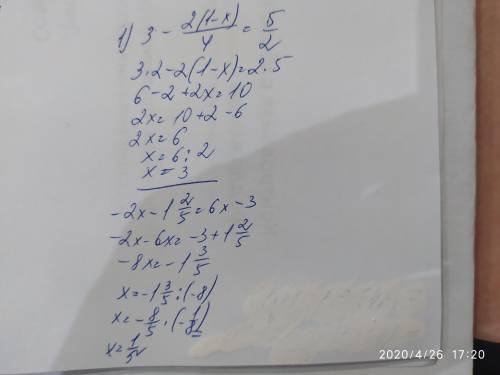 1) 3 - 2(1-x)/4 = 5/2
3·2-2(1-x)=2·5
6-2+2x=10
2x=10+2-6
2x=6
x=6:2
x=3
-2x-1 2/5=6x-3
-2x-6x=-3+1 2/5
-8x=-1 3/5
x=-1 3/5:(-8)
x=-8/5·(-1/8)
x=1/5
2020/4/26 17:20